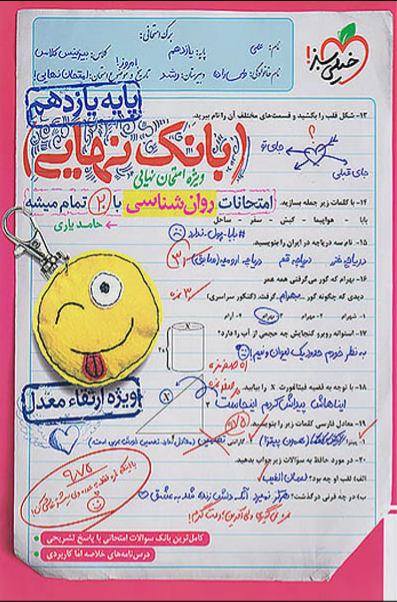 خیلی سبز!
برگ امتحانی:
نام: علی
پایه: یازدهم
نام خانوادگی:
دبیرستان: رشد
تاریخ و موضوع امتحان: امتحان نهایی!
پایه یازدهم
۱۳- شکل قلب را بکشید و قسمت‌های مختلف آن را نام ببرید.
بانک نهایی
ویژه امتحان نهایی
جای تو
جای قبلی
۱۴- با کلمات زیر جمله بسازید.
امتحانات روان‌شناسی با ۲۰ تمام میشه
حامد یاری
بابا - هواپیما - کیش - سفر - ساحل
بابا پول ندارد
۱۵- نام سه دریاچه در ایران را بنویسید.
دریاچه خزر دریاچه قم دریاچه ارومیه
۱۶- بهرام که گور می‌گرفتی همه عمر
دیدی که چگونه گور بهرام گرفت. (کنکور سراسری)
۱۷- استوانه روبرو گنجایش چه حجمی از آب را دارد؟
به نظر خودم حدود یک لیوان و نیم!
۱۸- با توجه به قضیه فیثاغورث X را بیابید.
ایناهاش پیداش کردم اینجاست
ویژه ارتقاء معدل
۱۹- معادل فارسی کلمات زیر را بنویسید.
۲۰- در مورد حافظ به سوالات زیر جواب بدهید.
الف) لقب او چه بود؟ لسان الغیب
ب) در چه قرنی درگذشت؟ هرگز نمیرد آنکه دلش زنده شد به عشق
۹/۷۵
کامل‌ترین بانک سوالات امتحانی با پاسخ تشریحی
درس‌نامه‌های خلاصه اما کاربردی